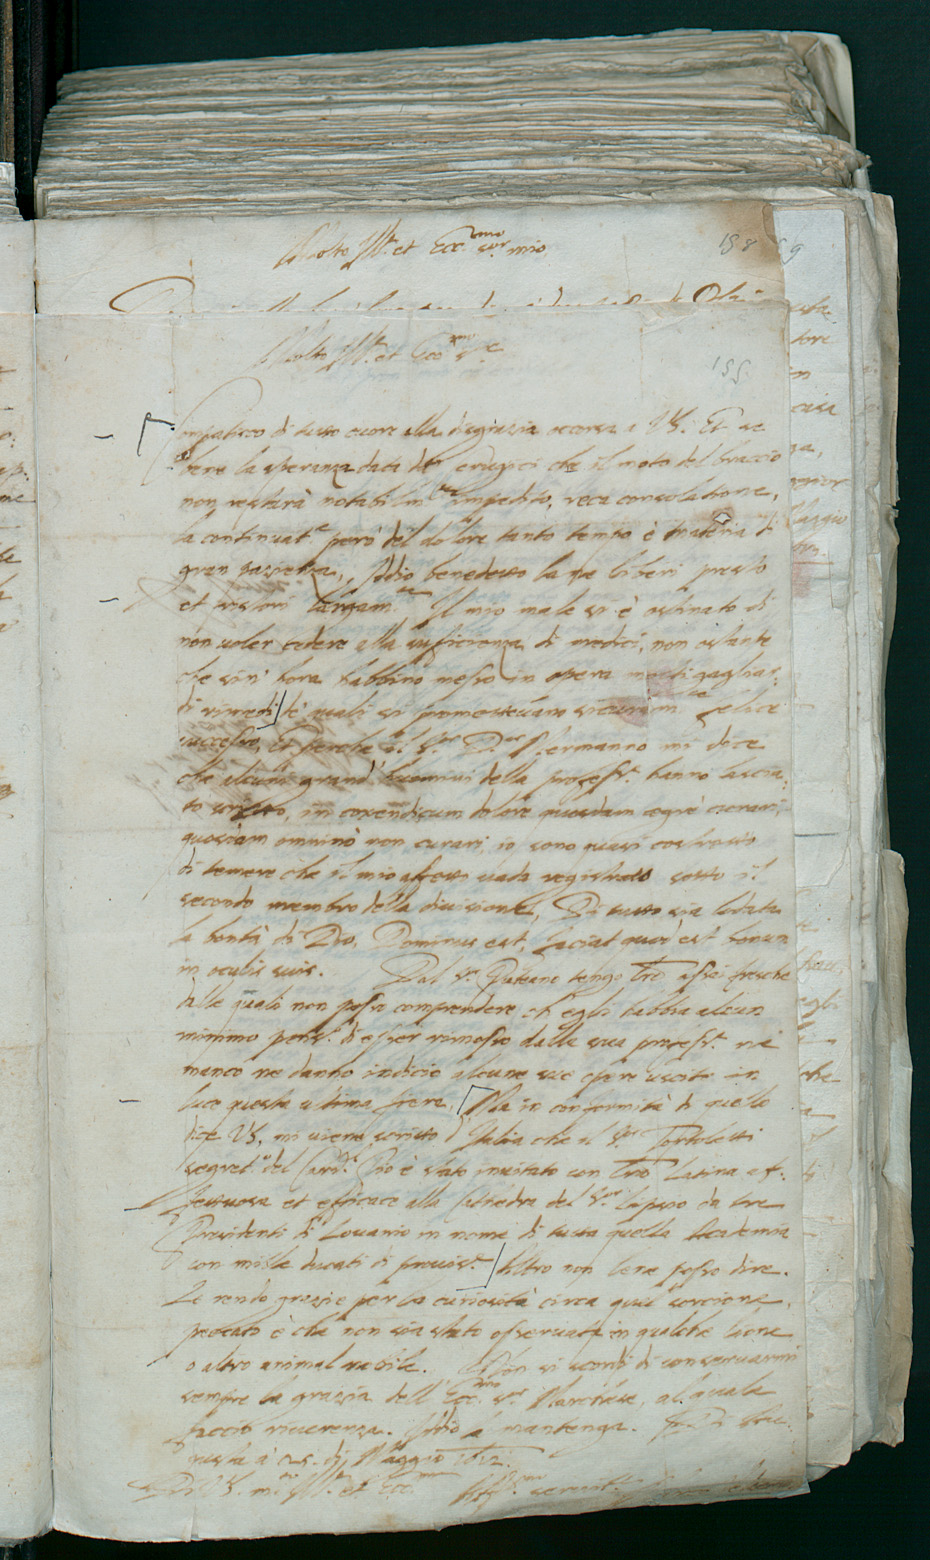 Molto Ill.re et Ecc.mo s.or mio
158
Molto Ill.re et Ecc.mo s.re
155.
Compatisco di tutto cuore alla disgrazia occorsa a VS. Et se
bene la speranza data da cerugici che il moto del braccio
non restarà notabilm.te impedito, reca consolatione,
la continuat.e però del dolore tanto tempo è materia di
gran pazienza, Iddio benedetto la ne liberi presto
et ristori largam.te Il mio male si è ostinato di
non voler cedere alla sufficienza di medici, non ostante
che sin' hora habbino messo in opera molti gagliar-
di rimedi, de quali si promettevano sicuram.te felice
successo, Et perche il S.or D.or Hermanno mi dice
che alcuni grand' huomini della profess.e hanno lascia-
to scritto, in coxendicum dolore quosdam aegrè curari,
quosdam omninò non curari, io sono quasi costretto
di temere che il mio affetto vada registrato sotto il
secondo membro della divisione, Di tutto sia lodata
la bontà di Dio, Dominus est, faciat quod est bonum
in oculis suis. Dal s.r Puteano tengo lre assai fresche
dalle quali non posso comprendere ch' egli habbia alcun
minimo pens.o di esser rimosso dalla sua profess.e nè
manco ne danno indicio alcune sue opere uscite in
luce questa ultima fiera, Ma in conformità di quello
dice VS. mi viene scritto d' Italia che il S.or Tortoletti
segret.o del Card. Pio è stato invitato con lre latina af-
fettuosa et efficace alla Cathedra del S.or Lipsio da tre
Presidenti di Lovanio in nome di tutta quella Academia
con mille ducati di provis.e Altro non le ne posso dire.
Le rendo grazie per la curiosità circa quei
peccato è che non sia stato osservata in qualche
o altro animal nobile. Non si scordi di conservarmi
sempre la grazia dell' Ecc.mo s.or Marchese, al quale
faccio riverenza. Iddio la mantenga.
à 25. di Maggio 1612.
Di V. S. m.to Ill.re et Ecc.ma Aff.mo